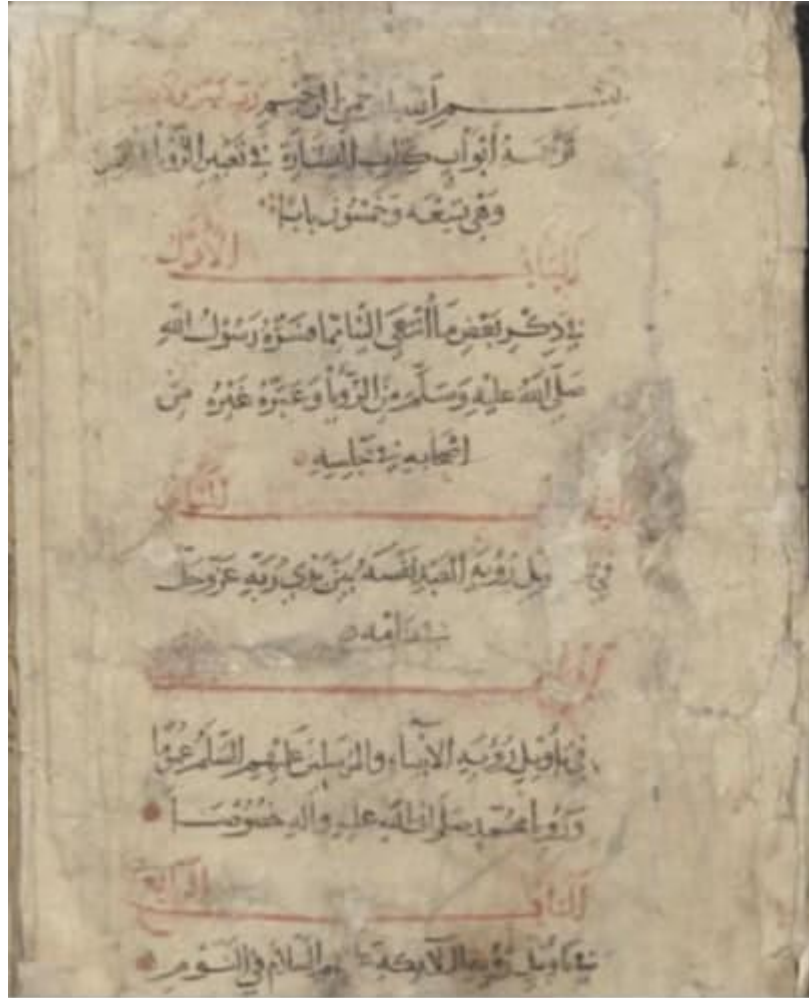 بسم الله الرحمن الرحيم
ترجمة أبواب كتاب البشارة في تعبير الرؤيا
وهي تسعة وخمسون بابا
الباب الأول
في ذكر بعض ما فسره رسول الله
صلى الله عليه وسلم من الرؤيا وعبره غيره من
أصحابه في مجلسه
الباب الثاني
في رؤية العبد نفسه بين يدي ربه عز وجل
في منامه
في تأويل رؤية الأنبياء والمرسلين عليهم السلم عموما
ورؤيا محمد صلى الله عليه وآله خصوصا
الباب الرابع
في تأويل رؤية الملائكة السلام في النوم